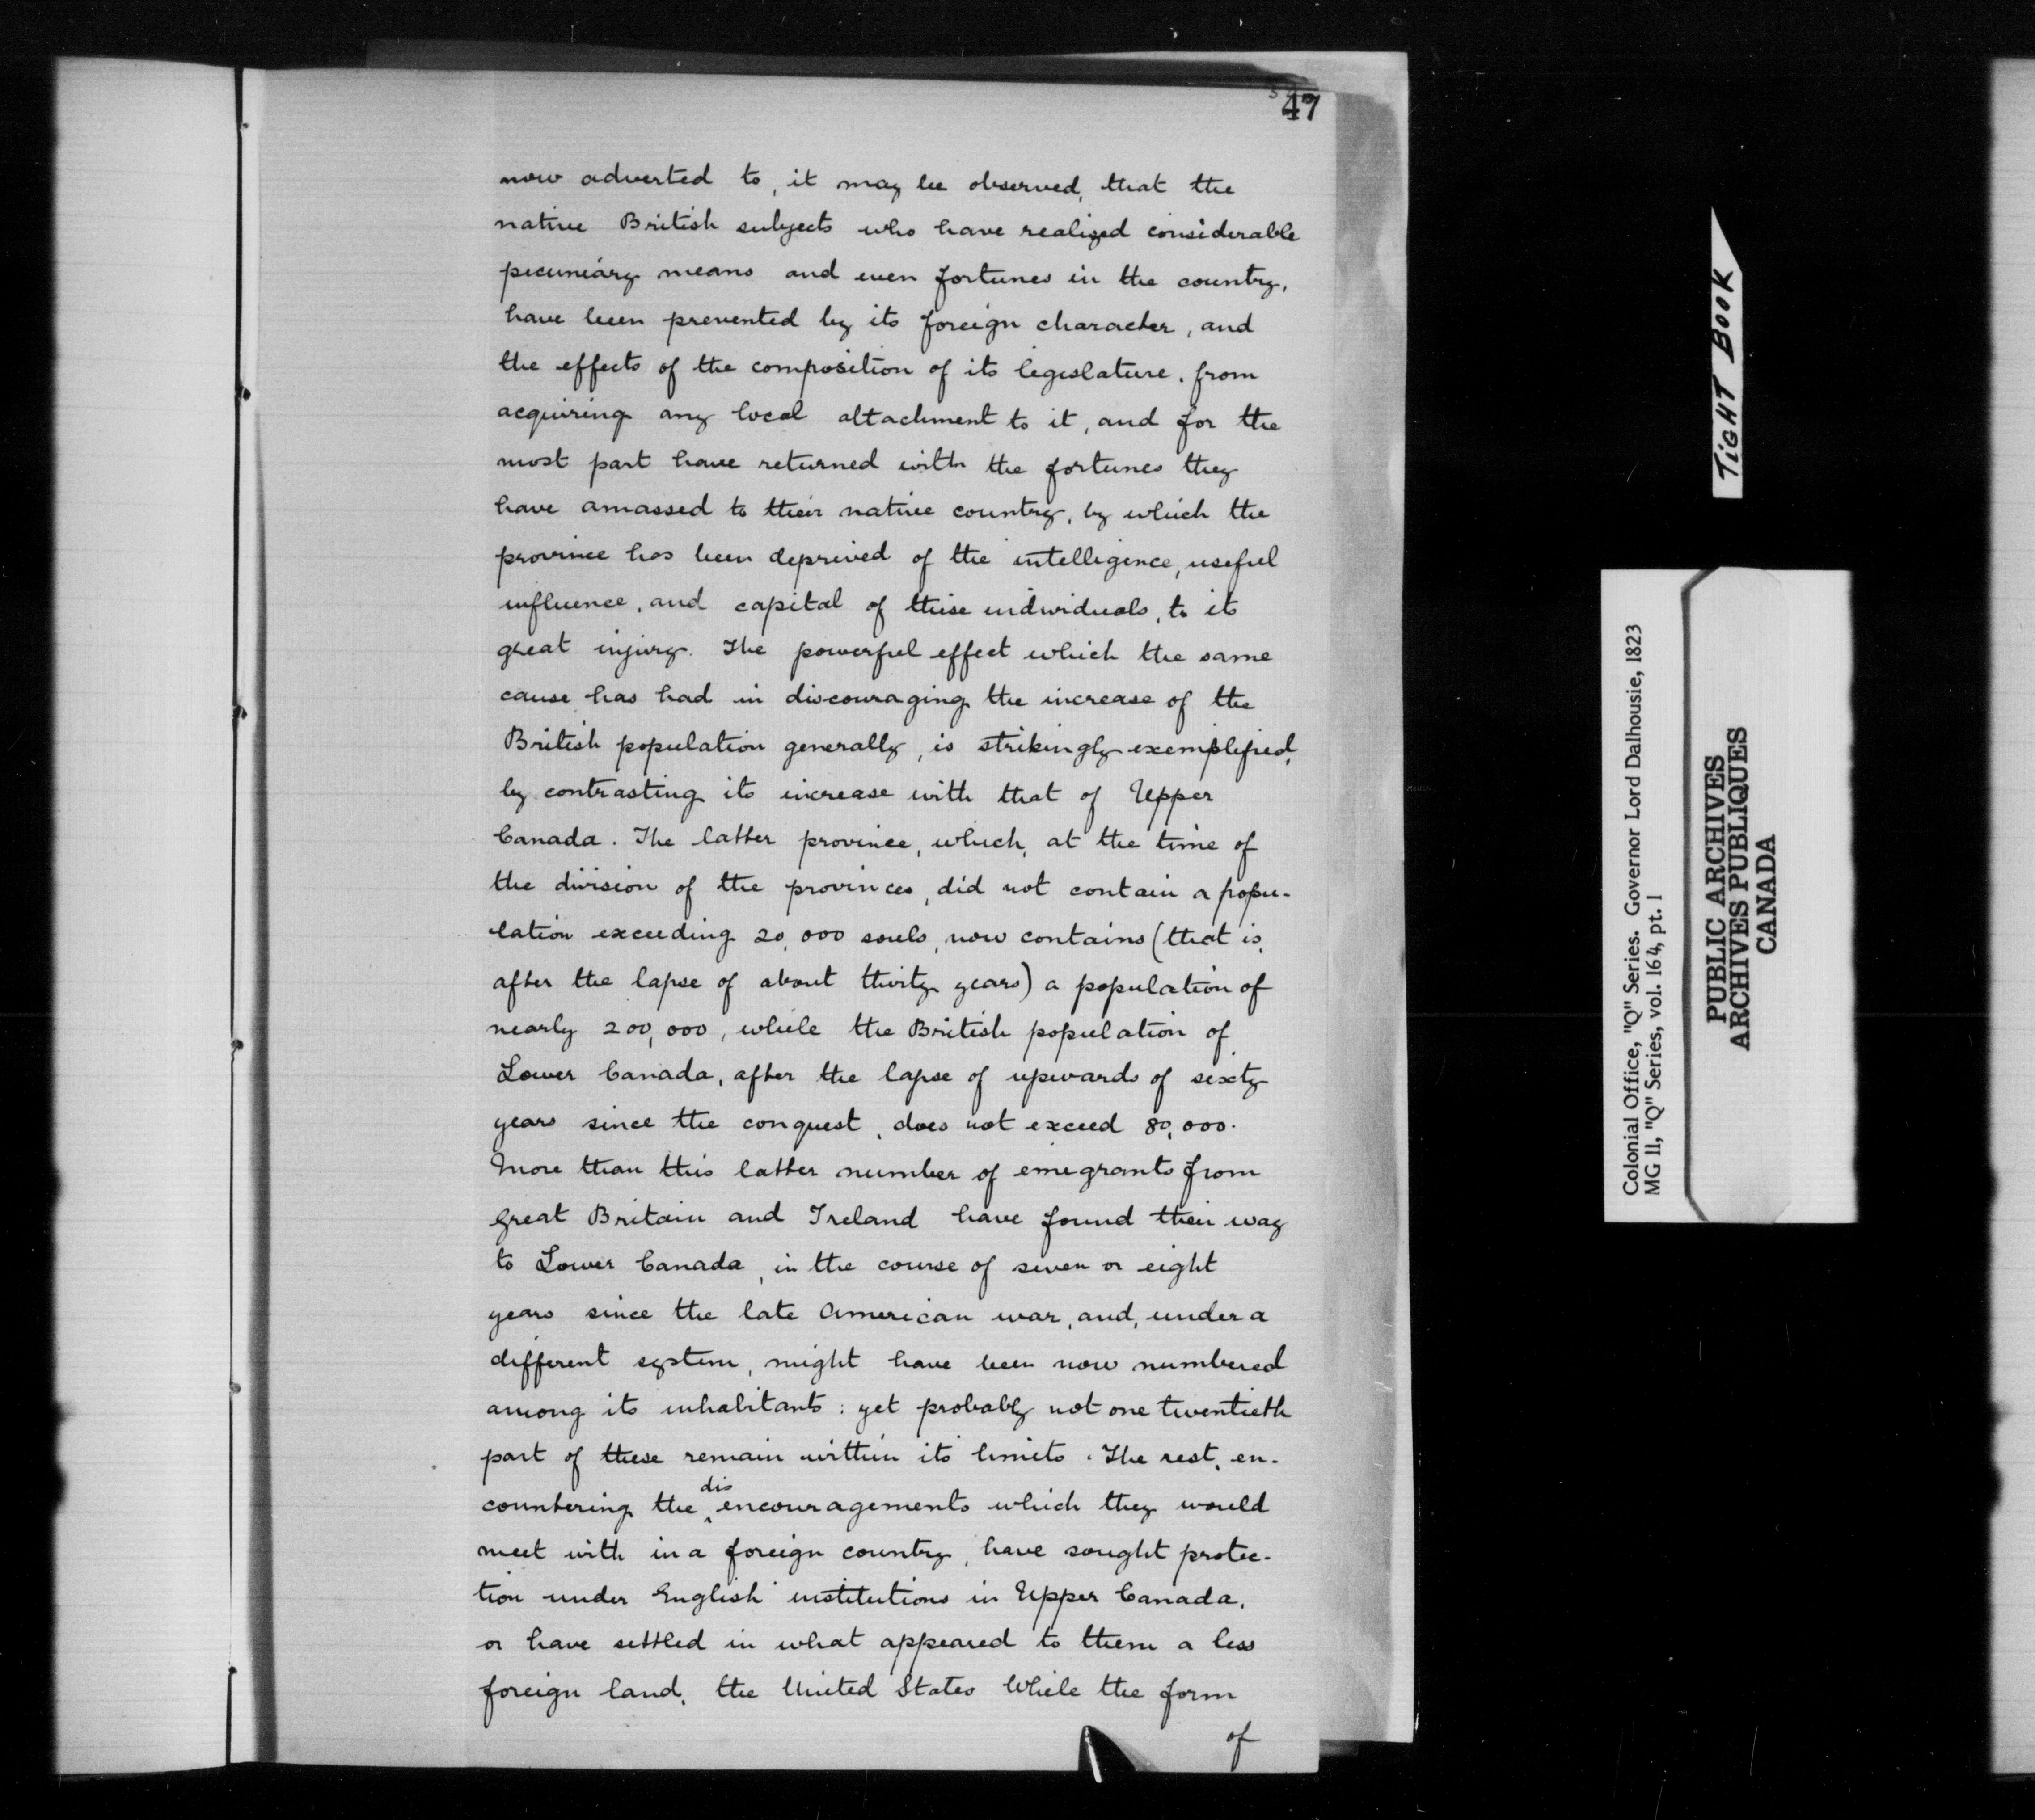 47
now adverted to, it may be observed, that the
native British subjects who have realized considerable
pecuniary means and even fortunes in the country,
have been prevented by its foreign character, and
the effects of the composition of its legislature, from
acquiring any local attachment to it, and for the
most part have returned with the fortunes they
have amassed to their native country, by which the
province has been deprived of the intelligence, useful
influence, and capital of these individuals, to its
great injury. The powerful effect which the same
cause has had in discouraging the increase of the
British population generally, is strikingly exemplified,
by contrasting its increase with that of Upper
Canada. The latter province, which, at the time of
the division of the provinces, did not contain a popu-
lation exceeding 20,000 souls, now contains (that is,
after the lapse of about thirty years) a population of
nearly 200,000, while the British population of
Lower Canada, after the lapse of upwards of sixty
years since the conquest, does not exceed 80,000.
More than this latter number of emigrants from
Great Britain and Ireland have found their way
to Lower Canada, in the course of seven or eight
years since the late American war, and, under a
different system, might have been now numbered
among its inhabitants: yet probably not one twentieth
part of these remain within its limits. The rest, en-
countering the disencouragements which they would
meet with in a foreign country, have sought protec-
tion under English institutions in Upper Canada,
or have settled in what appeared to them a less
foreign land, the United States While the form
of
TIGHT BOOK
Colonial Office, "Q" Series. Governor Lord Dalhousie, 1823
MG 11, "Q" Series, vol. 164, pt. 1
PUBLIC ARCHIVES
ARCHIVES PUBLIQUES
CANADA